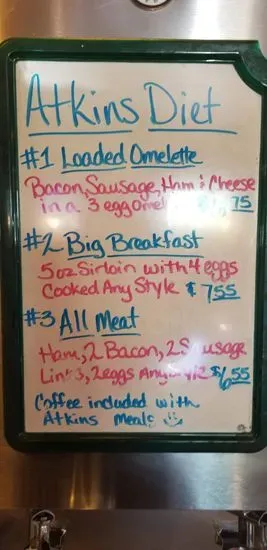 Atkins Diet
#1 Loaded Omelette
Bacon, Sausage, Ham & Cheese
in a 3 egg Omel 75
#2 Big Breakfast
5 oz Sirloin with 4 eggs
Cooked Any Style $ 7.55
#3 All Meat
Ham, 2 Bacon, 2 Sausage
Links, 2 eggs Any Style $6.55
Coffee included with
Atkins Meals